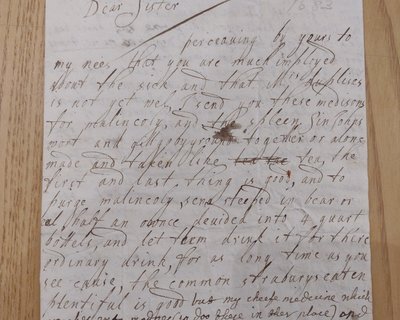 Dear Sister
perceaving by yours to
my neece that you are much imployed
about the sick and that mrs
is not yet wel, I send you these medisons
for malincoly, and the spleen, Sinjohns
woort and gill go by ground together or alone
made and taken like tea, the
first and last thing is good, and to
purge malincoly, sena steeped in bear or
al, half an ounce devided into 4 quart
bottels, and let them drink it for there
ordinary drink for as long time as you
see cause, the common straburys eaten
plentiful is good but my cheefe medecine which
in these place) and